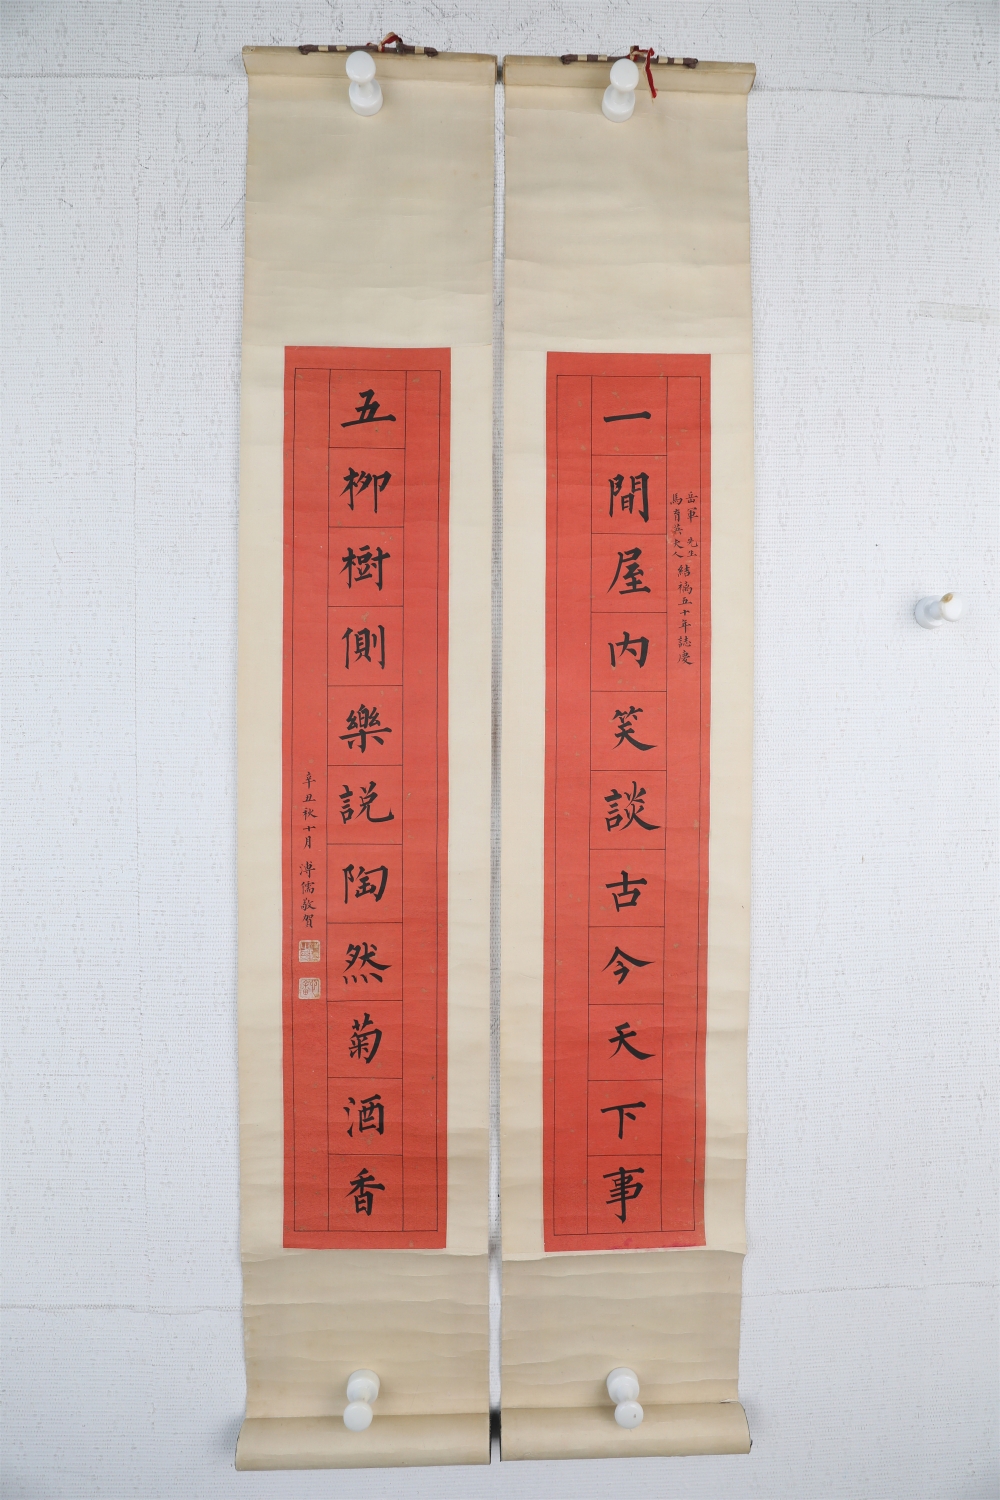 一間屋内笑談古今天下事
岳軍先生
馬育英夫人
結褵五十年誌慶
五柳樹側樂説陶然菊酒香
辛丑秋十月 溥儒敬賀